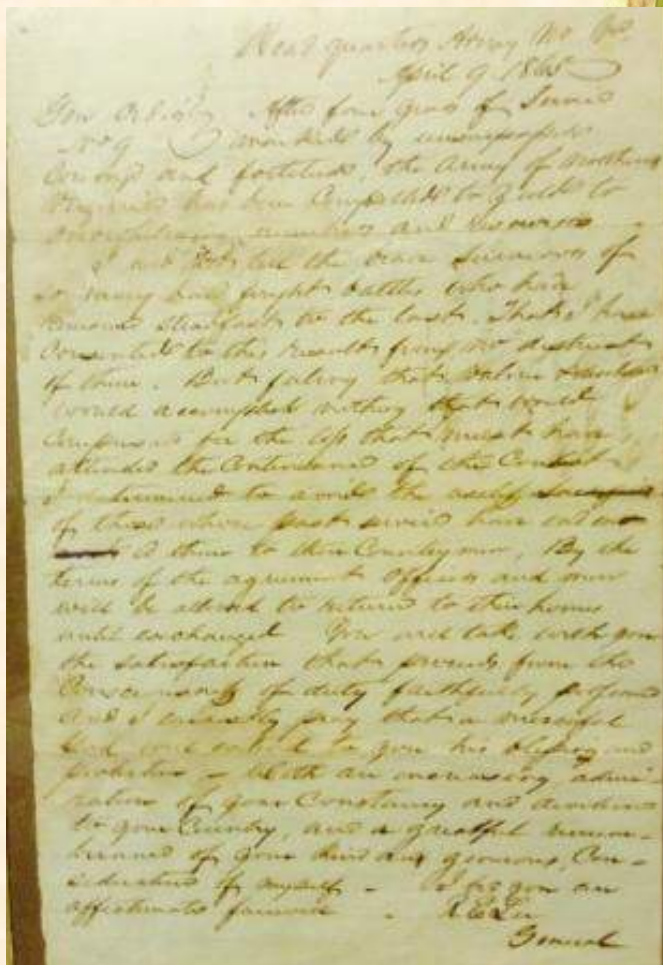 Head quarters Army No Va
April 9 1865
Gen Orders After four years of Service
No 9 marked by unsurpassed
Courage and fortitude, the Army of Northern
Virginia has been Compelled to yield to
overwhelming numbers and resources
I need not tell the brave Survivors of
so many hard fought battles who have
remained steadfast to the last. That I have
Consented to this result from no distrust
of them. But feeling that valor
would accomplish nothing that would
Compensate for the loss that must have
attended the Continuance of the Contest
I determined to avoid the useless
of those whose past service have
them to their Countrymen. By the
terms of the agreement Officers and men
will be allowed to return to their homes
until exchanged You will take with you
the satisfaction that proceeds from the
Consciousness of duty faithfully performed
and I earnestly pray that a merciful
God will extend to you his blessing and
protection – With an increasing admi-
ration of your Constancy and devotion
to your Country, and a grateful remem-
brance of your kind and generous Con-
sideration of myself – I bid you an
affectionate farewell –   R E Lee
General